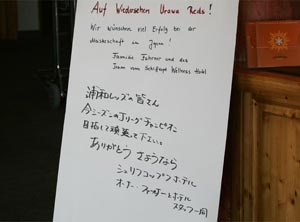 Auf Wiedersehen Urawa Reds!
Wir wünschen viel Erfolg bei der
Meisterschaft am Japan!
Familie Fahrner und das
Team vom Schlipfkopf Wellness Hotel
浦和レッズの皆さん
今シーズンのJリーグチャンピオン
目指して頑張って下さい。
ありがとう さようなら
シュリフコップフホテル
オーナー ファーナーとホテル
スタッフ一同